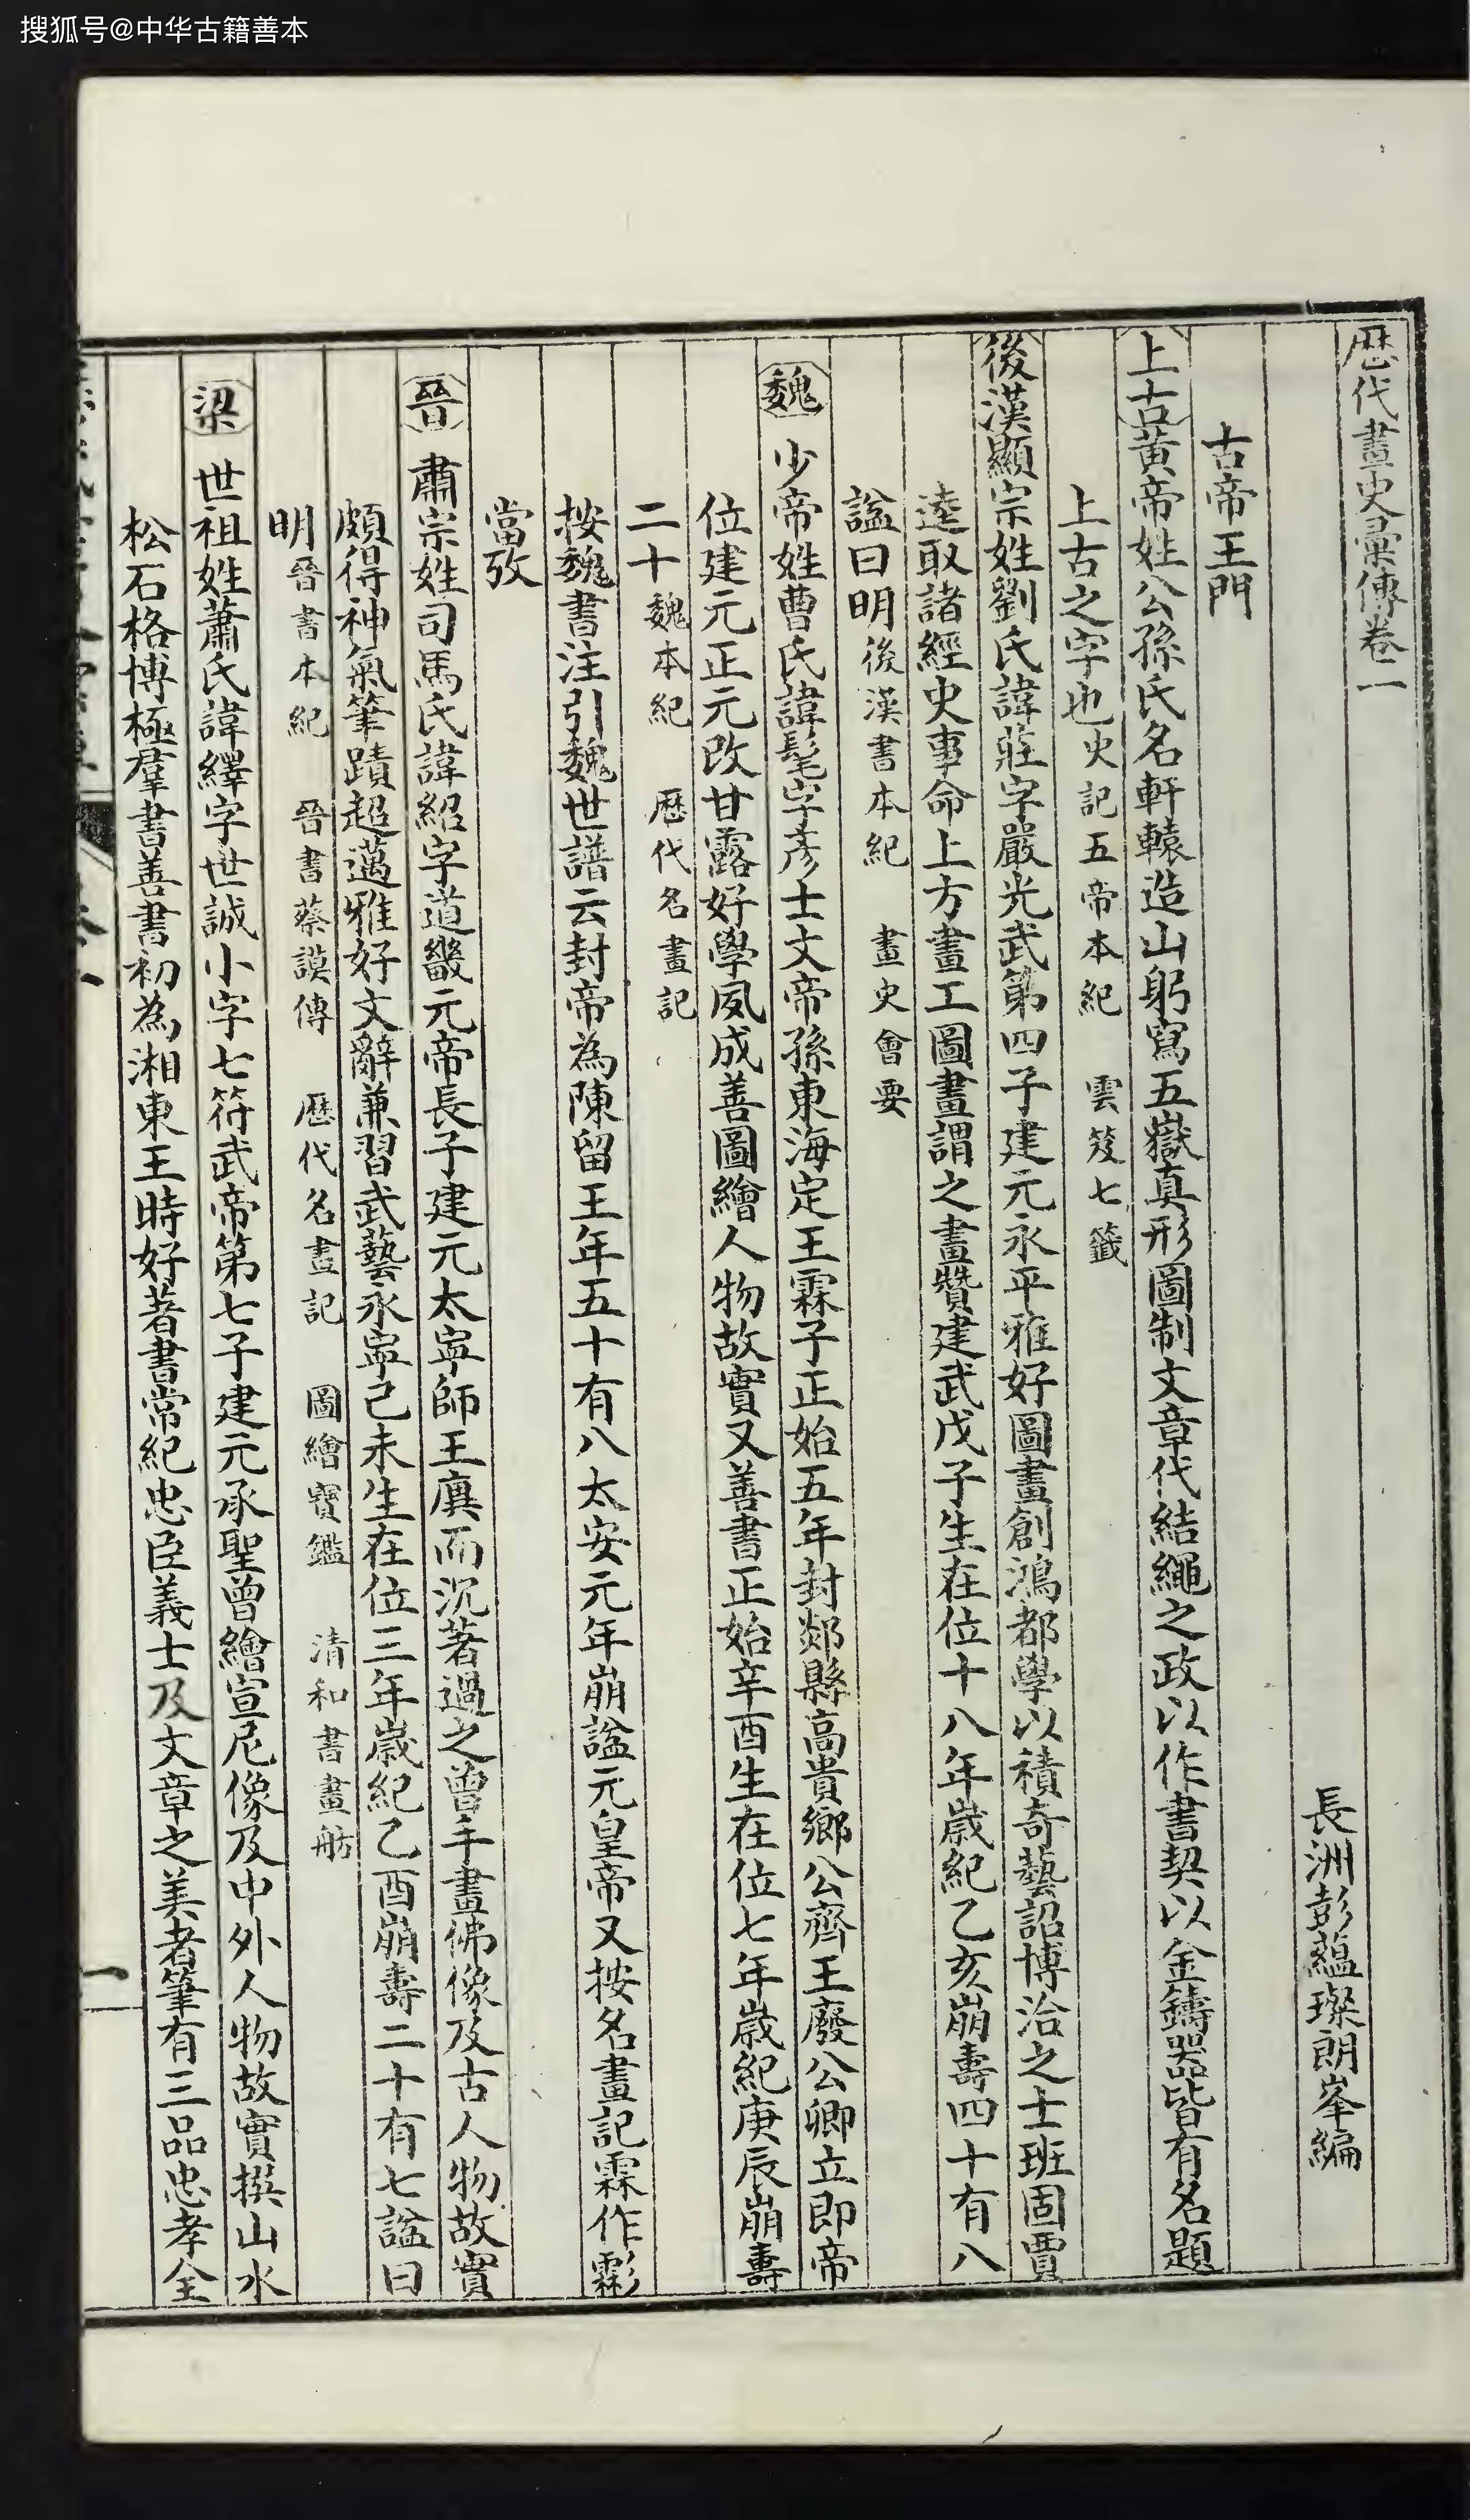 搜狐号@中华古籍善本
歷代畫史彙傳卷一
長洲彭蘊璨朗峯編
古帝王門
上古黃帝姓公孫氏名軒轅造山躬寫五嶽真形圖制文章代結繩之政以作書契以金鑄器皆有名題
上古之字也史記五帝本紀 雲笈七籤
後漢顯宗姓劉氏諱莊字嚴光武第四子建元永平雅好圖畫創鴻都學以積奇藝詔博洽之士班固賈
逵取諸經史事命上方畫工圖畫謂之畫贊建武戊子生在位十八年歲紀乙亥崩壽四十有八
諡曰明後漢書本紀 畫史會要
魏 少帝姓曹氏諱髦字彥士文帝孫東海定王霖子正始五年封郯縣高貴鄉公齊王廢公卿立即帝
位建元正元改甘露好學夙成善圖繪人物故實又善書正始辛酉生在位七年歲紀庚辰崩壽
二十魏本紀 歷代名畫記
按魏書注引魏世譜云封帝為陳留王年五十有八太安元年崩諡元皇帝又按名畫記霖作䨲
當攷
晉 肅宗姓司馬氏諱紹字道畿元帝長子建元太寧師王廙而沉著過之曾手畫佛像及古人物故實
頗得神氣筆蹟超邁雅好文辭兼習武藝永寧己未生在位三年歲紀乙酉崩壽二十有七諡曰
明晉書本紀 晉書蔡謨傳 歷代名畫記 圖繪寶鑑 清和書畫舫
梁 世祖姓蕭氏諱繹字世誠小字七符武帝第七子建元承聖曾繪宣尼像及中外人物故實撰山水
松石格博極羣書善書初為湘東王時好著書常紀忠臣義士及文章之美者筆有三品忠孝全
一